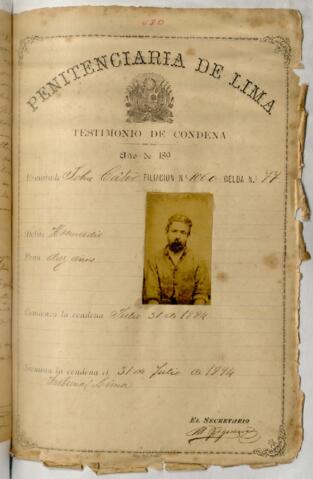 480
PENITENCIARIA DE LIMA
TESTIMONIO DE CONDENA
Año de 189
John FILIACION N.º CELDA N.º 77
Delito Homicidio
Pena diez años
Comienza la condena Julio 31 de 1884
Termina la condena el 31 de Julio de 1894
Tribunal, Lima
EL SECRETARIO